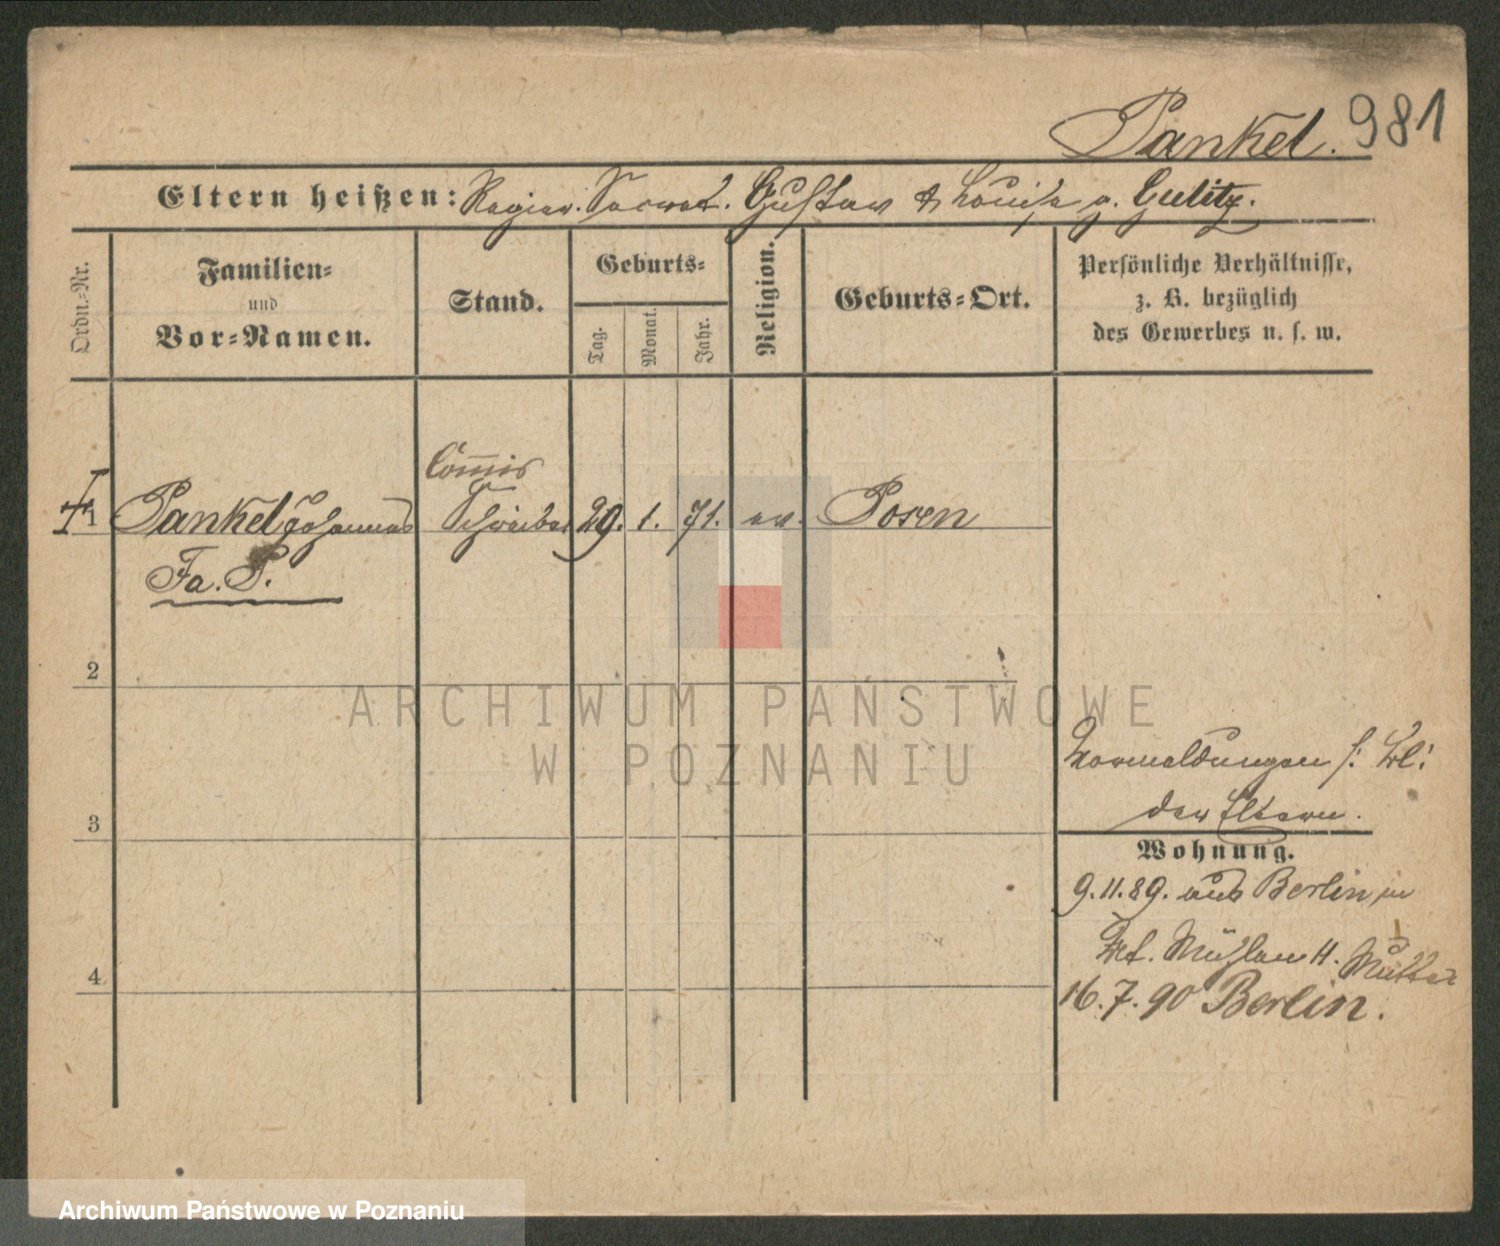 Pankel. 981
Eltern heißen: Regier. Secret. Gustav & Louise g. Gulitz.
Ordn.-Nr.
Familien-
und
Vor-Namen.
Stand.
Geburts-
Tag.
Monat.
Jahr.
Religion.
Geburts-Ort.
Persönliche Verhältnisse,
z. B. bezüglich
des Gewerbes u. s. w.
Com̅is
1 Pankel Johannes Schreiber 29. 1. 71. ev. Posen
Fa. P.
2
3
4
Vormeldungen s: Bl:
der Eltern.
Wohnung.
9.11.89. aus Berlin in
Mühlen 11. Mutter
16.7.90 Berlin.
ARCHIWUM PAŃSTWOWE
W POZNANIU
Archiwum Państwowe w Poznaniu